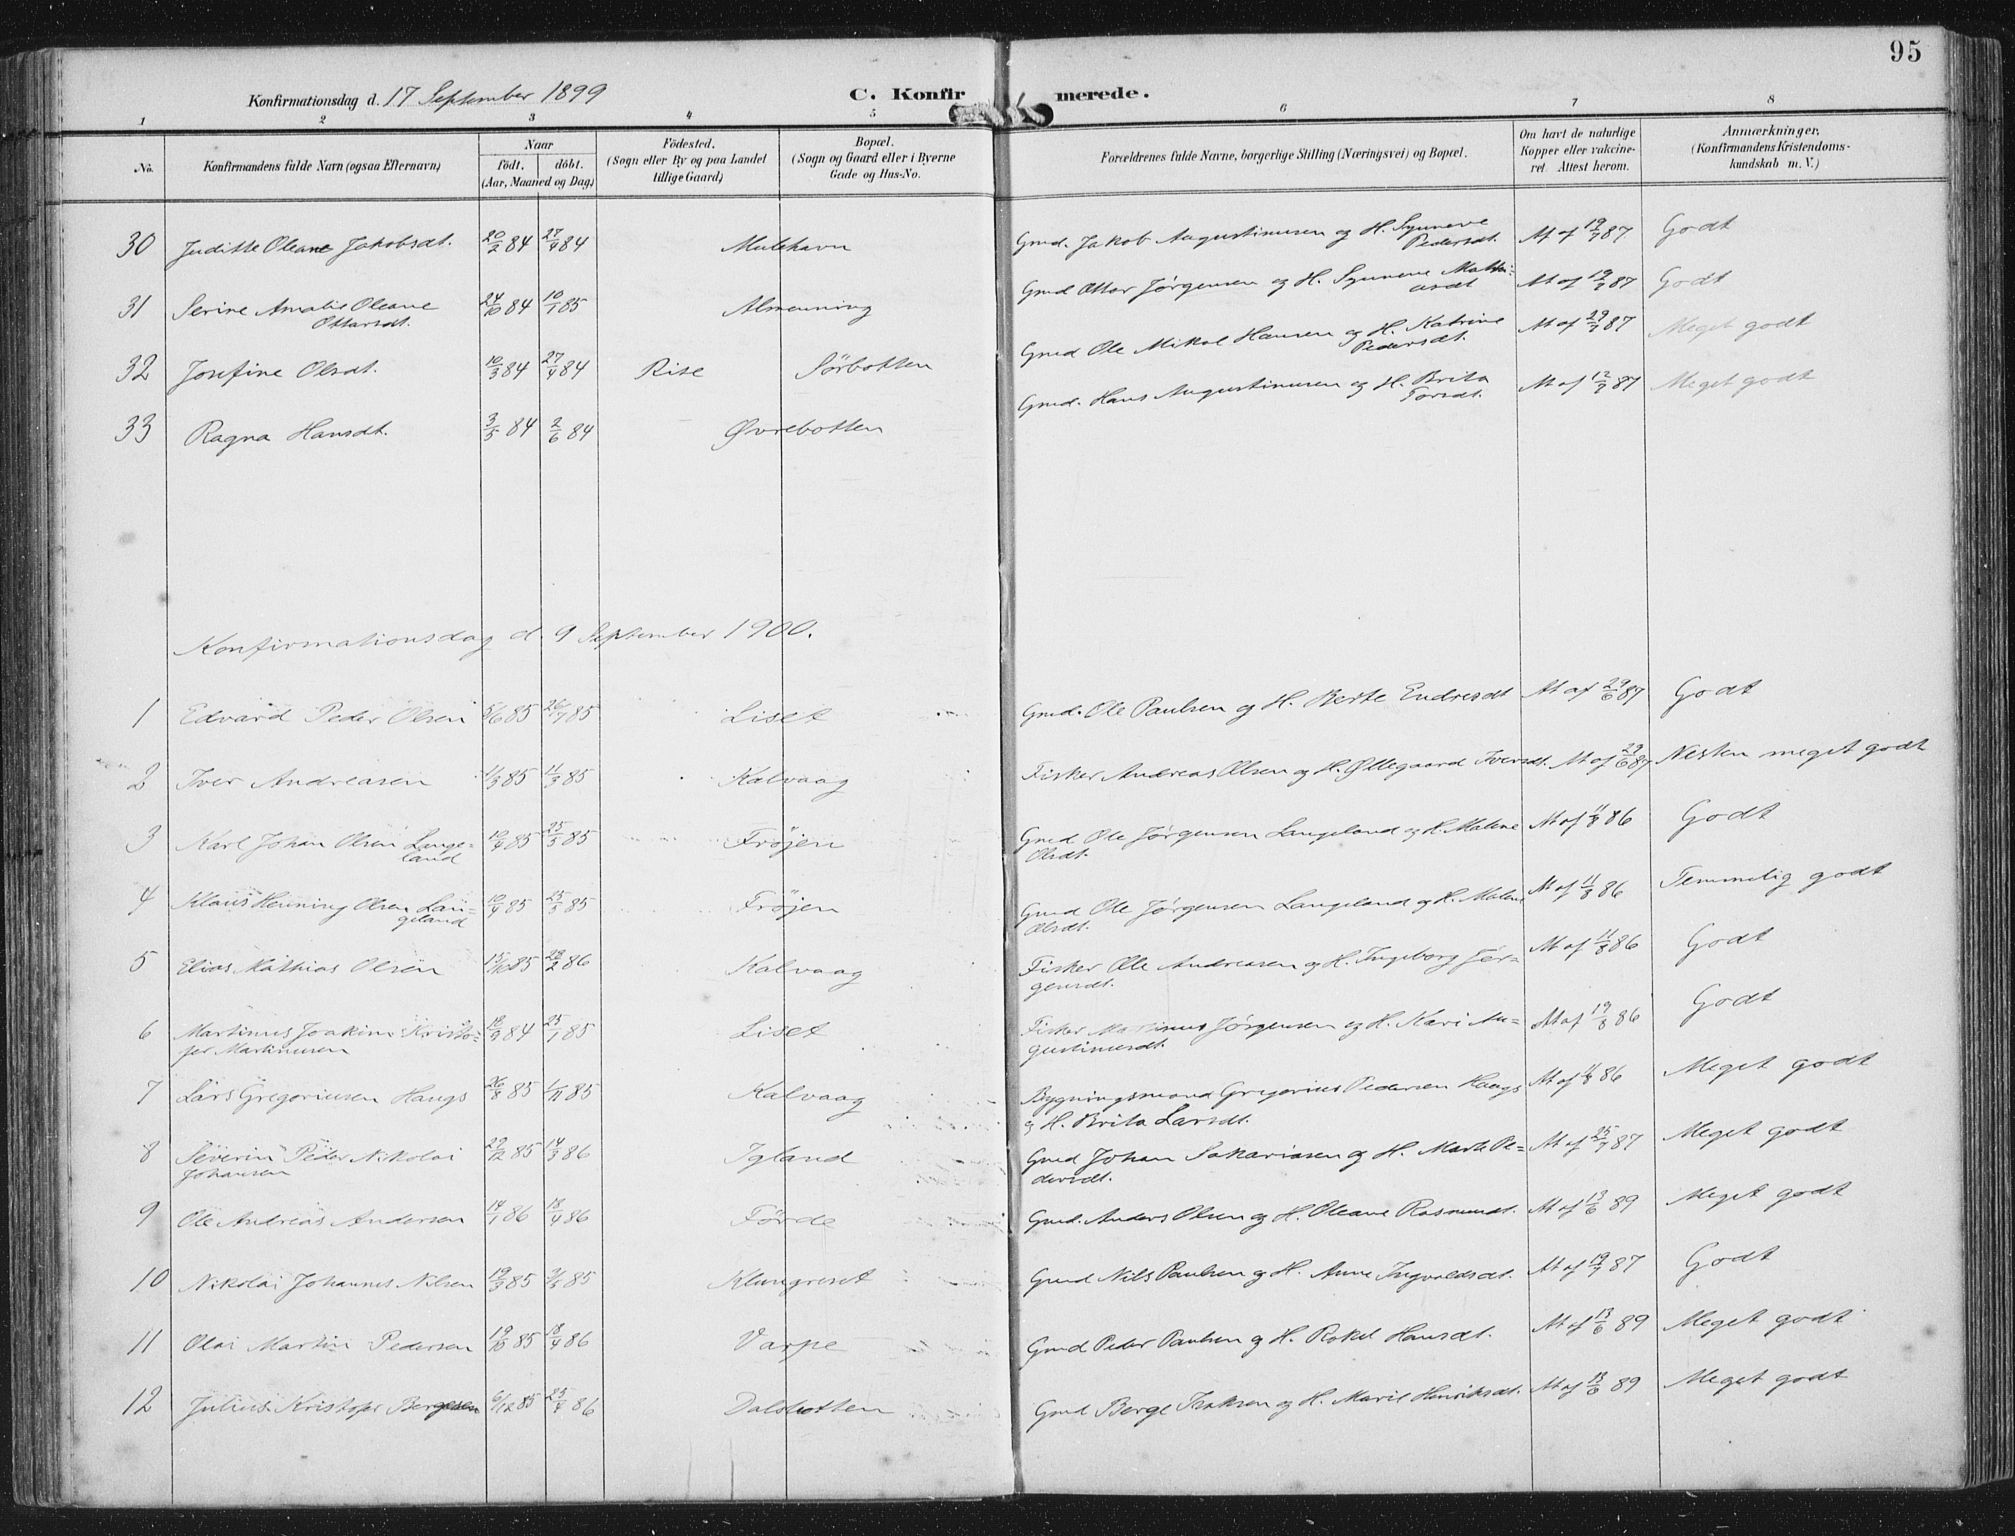 95
Konfirmationsdag d. 17 September 1899
C. Konfirmerede.
1 2 3 4 5 6 7 8
No.
Konfirmandens fulde Navn (ogsaa Efternavn)
Naar
födt. döbt.
(Aar, Maaned og Dag)
Födested.
(Sogn eller By og paa Landet
tillige Gaard)
Bopæl.
(Sogn og Gaard eller i Byerne
Gade og Hus-No.
Forældrenes fulde Navne, borgerlige Stilling (Næringsvei) og Bopæl.
Om havt de naturlige
Kopper eller vakcine-
ret. Attest herom.
Anmærkninger,
(Konfirmandens Kristendoms-
kundskab m. V.)
30 Juditte Oleane Jakobsdt. 20/2 84 27/4 84 Mulehavn Gmd. Jakob Augustinusen og H. Synneve Pedersdt. At af 19/7 87 Godt
31 Serine Amalie Oleane Ottarsdt. 24/10 84 10/1 85 Almenning Gmd Ottar Jørgensen og H. Synneve Mathi-
asdt At af 19/7 87 Godt
32 Josefine Olsdt. 10/3 84 27/4 84 Rise Sørbotten Gmd Ole Mikal Hansen og H. Katrine Pedersdt. At af 29/7 87 Meget godt
33 Ragna Hansdt. 3/5 84 2/6 84 Øvrebotten Gmd. Hans Augustinusen og H. Brita Torsdt. At af 12/7 87 Meget godt
Konfirmationsdag d. 9 September 1900.
1 Edvard Peder Olsen 5/6 85 26/7 85 Liset Gmd. Ole Paulsen og H. Berte Endresdt At af 29/6 87 Godt
2 Iver Andreasen 1/3 85 11/3 85 Kalvaag Fisker Andreas Olsen og H. Øllegaard Iversdt. At af 29/6 87 Nesten meget godt
3 Karl Johan Olsen Lange-
land 10/4 85 25/5 85 Frøjen Gmd Ole Jørgensen Langeland og H. Malene
Olsdt. At af 11/8 86 Godt
4 Klaus Henning Olsen Lan-
geland 10/4 85 25/5 85 Frøjen Gmd Ole Jørgensen Langeland og H. Malene
Olsdt. At af 11/8 86 Temmelig godt
5 Elias Mathias Olsen 15/10 85 28/2 86 Kalvaag Fisker Ole Andreasen og H. Ingeborg Jør-
gensdt. At af 11/8 86 Godt
6 Martinus Joakim Kristo-
fer Martinusen 84 25/1 85 Liset Fisker Martinus Jørgensen og H. Kari Au-
gustinusdt. At af 19/8 86 Godt
7 Lars Gregoriusen Haugs 26/8 85 1/11 85 Kalvaag Bygningsmand Gregorius Pedersen Haugs
og H. Brita Larsdt. At af 11/8 86 Meget godt
8 Severin Peder Nikolai
Johansen 29/12 85 14/3 86 Igland Gmd Johan Sakariasen og H. Marta Pe-
dersdt. At af 25/7 87 Meget godt
9 Ole Andreas Andersen 14/1 86 18/4 86 Førde Gmd. Anders Olsen og H. Oleane Rasmusdt. At af 13/6 89 Meget godt
10 Nikolai Johannes Nilsen 19/3 85 85 Klungreset Gmd Nils Paulsen og H. Anne Ingvaldsdt. At af 19/7 87 Godt
11 Olai Martin Pedersen 19/10 85 18/4 86 Varpe Gmd Peder Paulsen og H. Rakel Hansdt. At af 13/6 89 Meget godt
12 Julius Kristofer Bergesen 6/12 85 25/4 86 Dalsbotten Gmd Berge Isaksen og H. Marie Henriksdt. At af 13/6 89 Meget godt